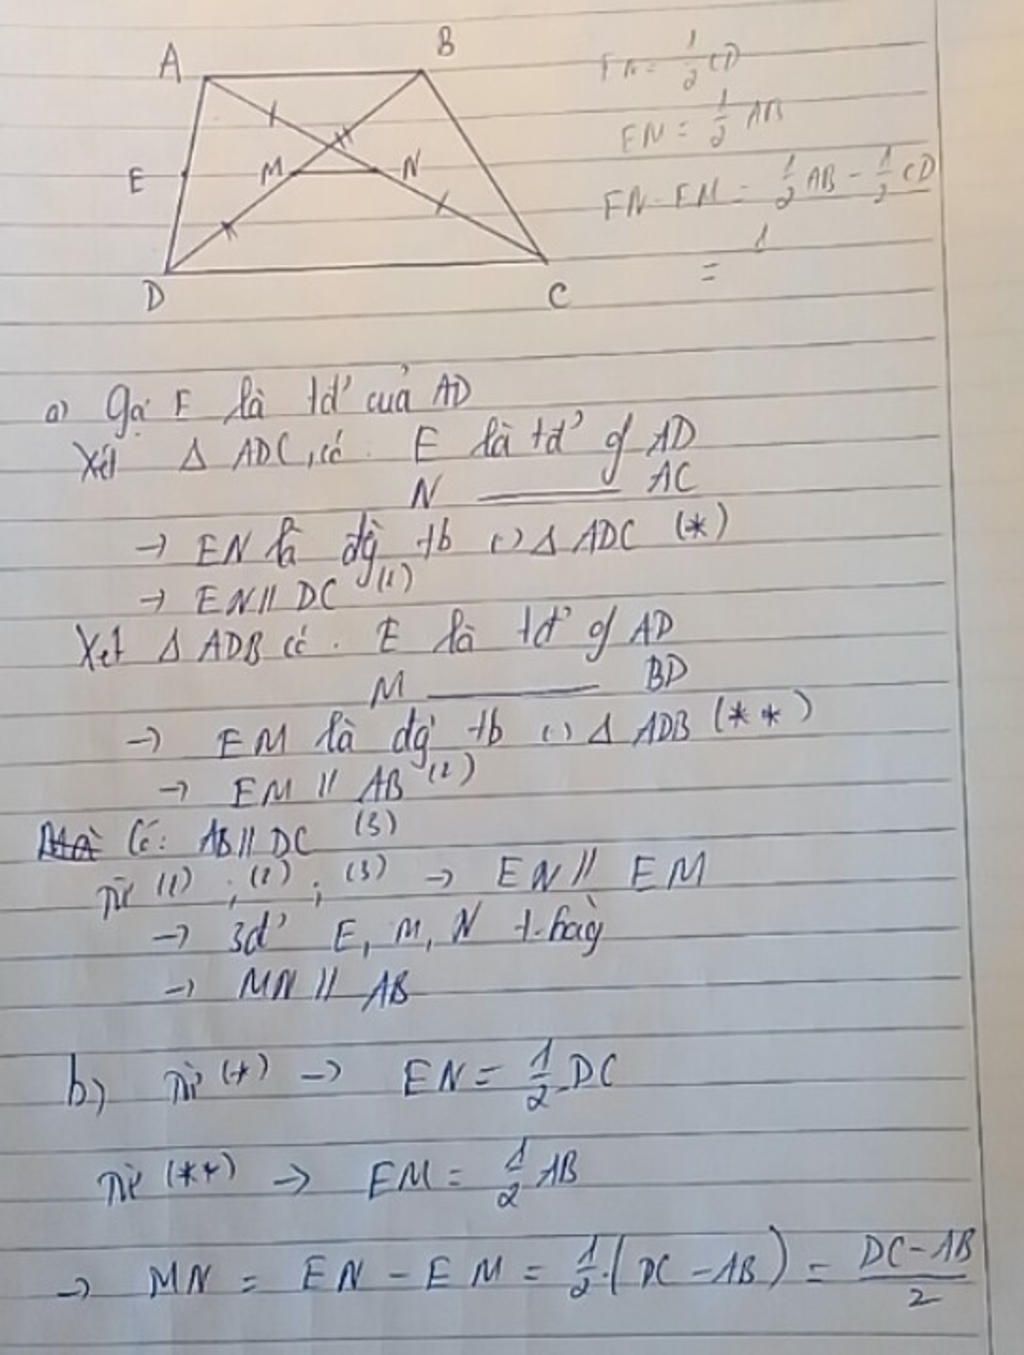 A
B
E
M
N
D
C
EN = 1/2 CD
EN = 1/2 AB
EN - EM = 1/2 AB - 1/2 CD
= 1
a) Gọi E là tđ' cuả AD
Xét Δ ADC, có : E là tđ' of AD
N ——— AC
→ EN là đg tb () Δ ADC (*)
→ EN // DC (1)
Xét Δ ADB có : E là tđ' of AD
M ——— BD
→ EM là đg tb () Δ ADB (**)
→ EM // AB (2)
Có: AB // DC (3)
Từ (1) ; (2) ; (3) → EN // EM
→ 3đ' E, M, N t.hàg
→ MN // AB
b) Từ (*) → EN = 1/2 DC
Từ (**) → EM = 1/2 AB
→ MN = EN - EM = 1/2 . (DC - AB) = (DC - AB)/2